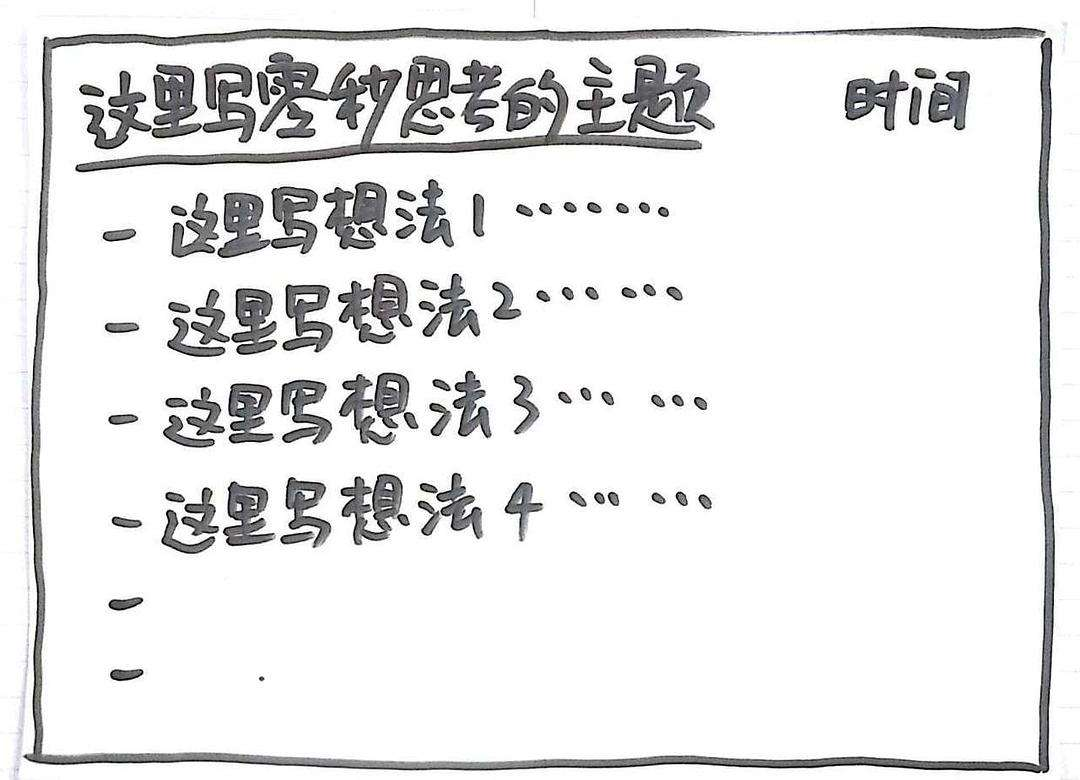 这里写零秒思考的主题 时间
- 这里写想法1 ……
- 这里写想法2 … …
- 这里写想法3 … …
- 这里写想法4 … …
-
-